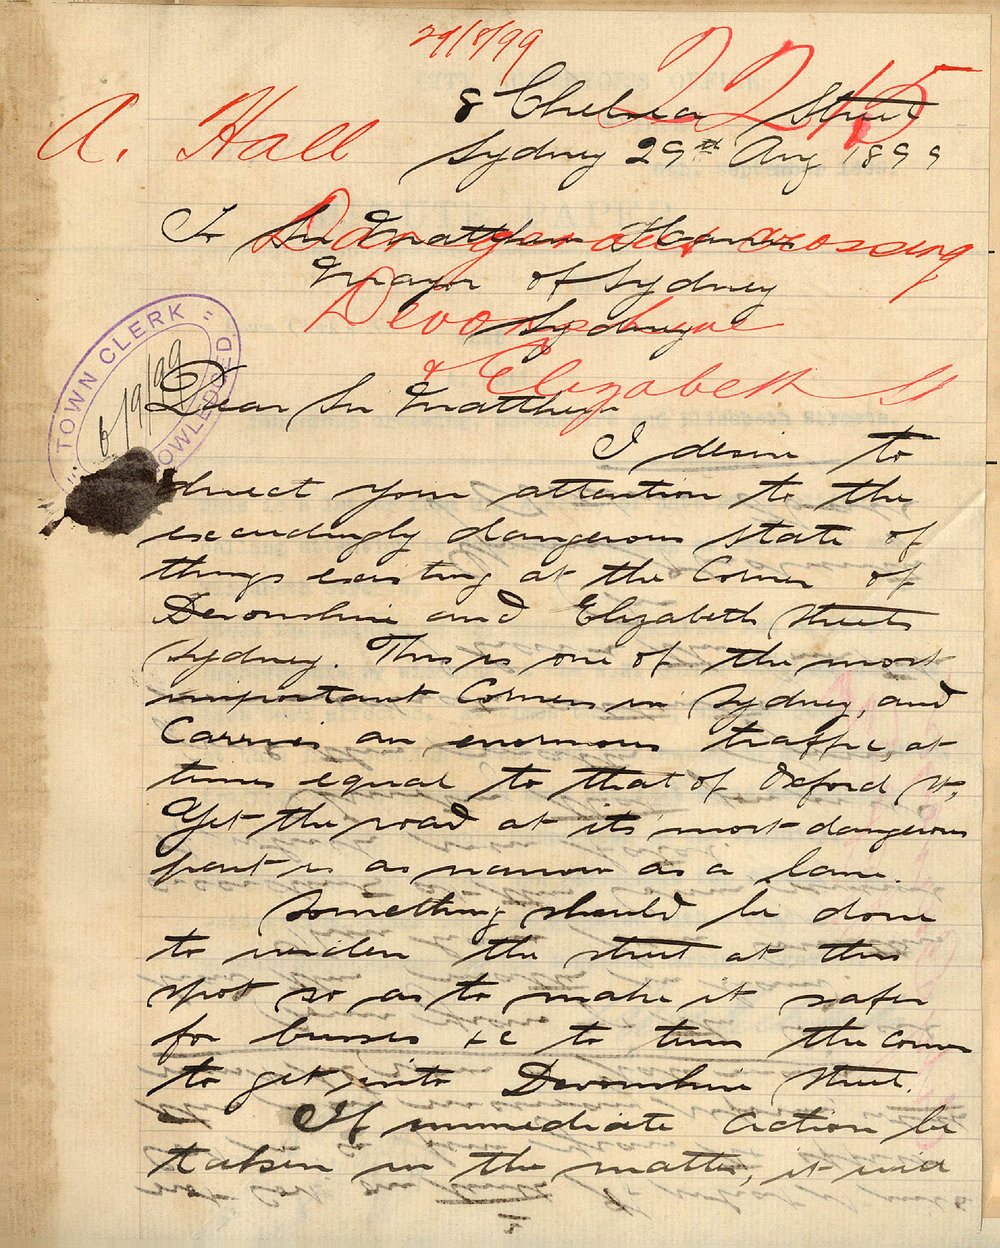 29/8/99
2215
A. Hall
8 Chelsea Street
Sydney 29th Aug 1899
To Sir Matthew Harris
Mayor of Sydney
Sydney
Dangerous crossing
Devonshire
& Elizabeth St
TOWN CLERK
6/9/99
Dear Sir Matthew
I desire to
direct your attention to the
exceedingly dangerous state of
things existing at the Corner of
Devonshire and Elizabeth Streets
Sydney. This is one of the most
important Corners in Sydney, and
Carries an enormous traffic, at
times equal to that of Oxford St,
Yet the road at its most dangerous
part is as narrow as a lane.
Something should be done
to widen the street at this
spot so as to make it safer
for busses &c to turn the corner
to get into Devonshire Street.
If immediate action be
taken in the matter, it will